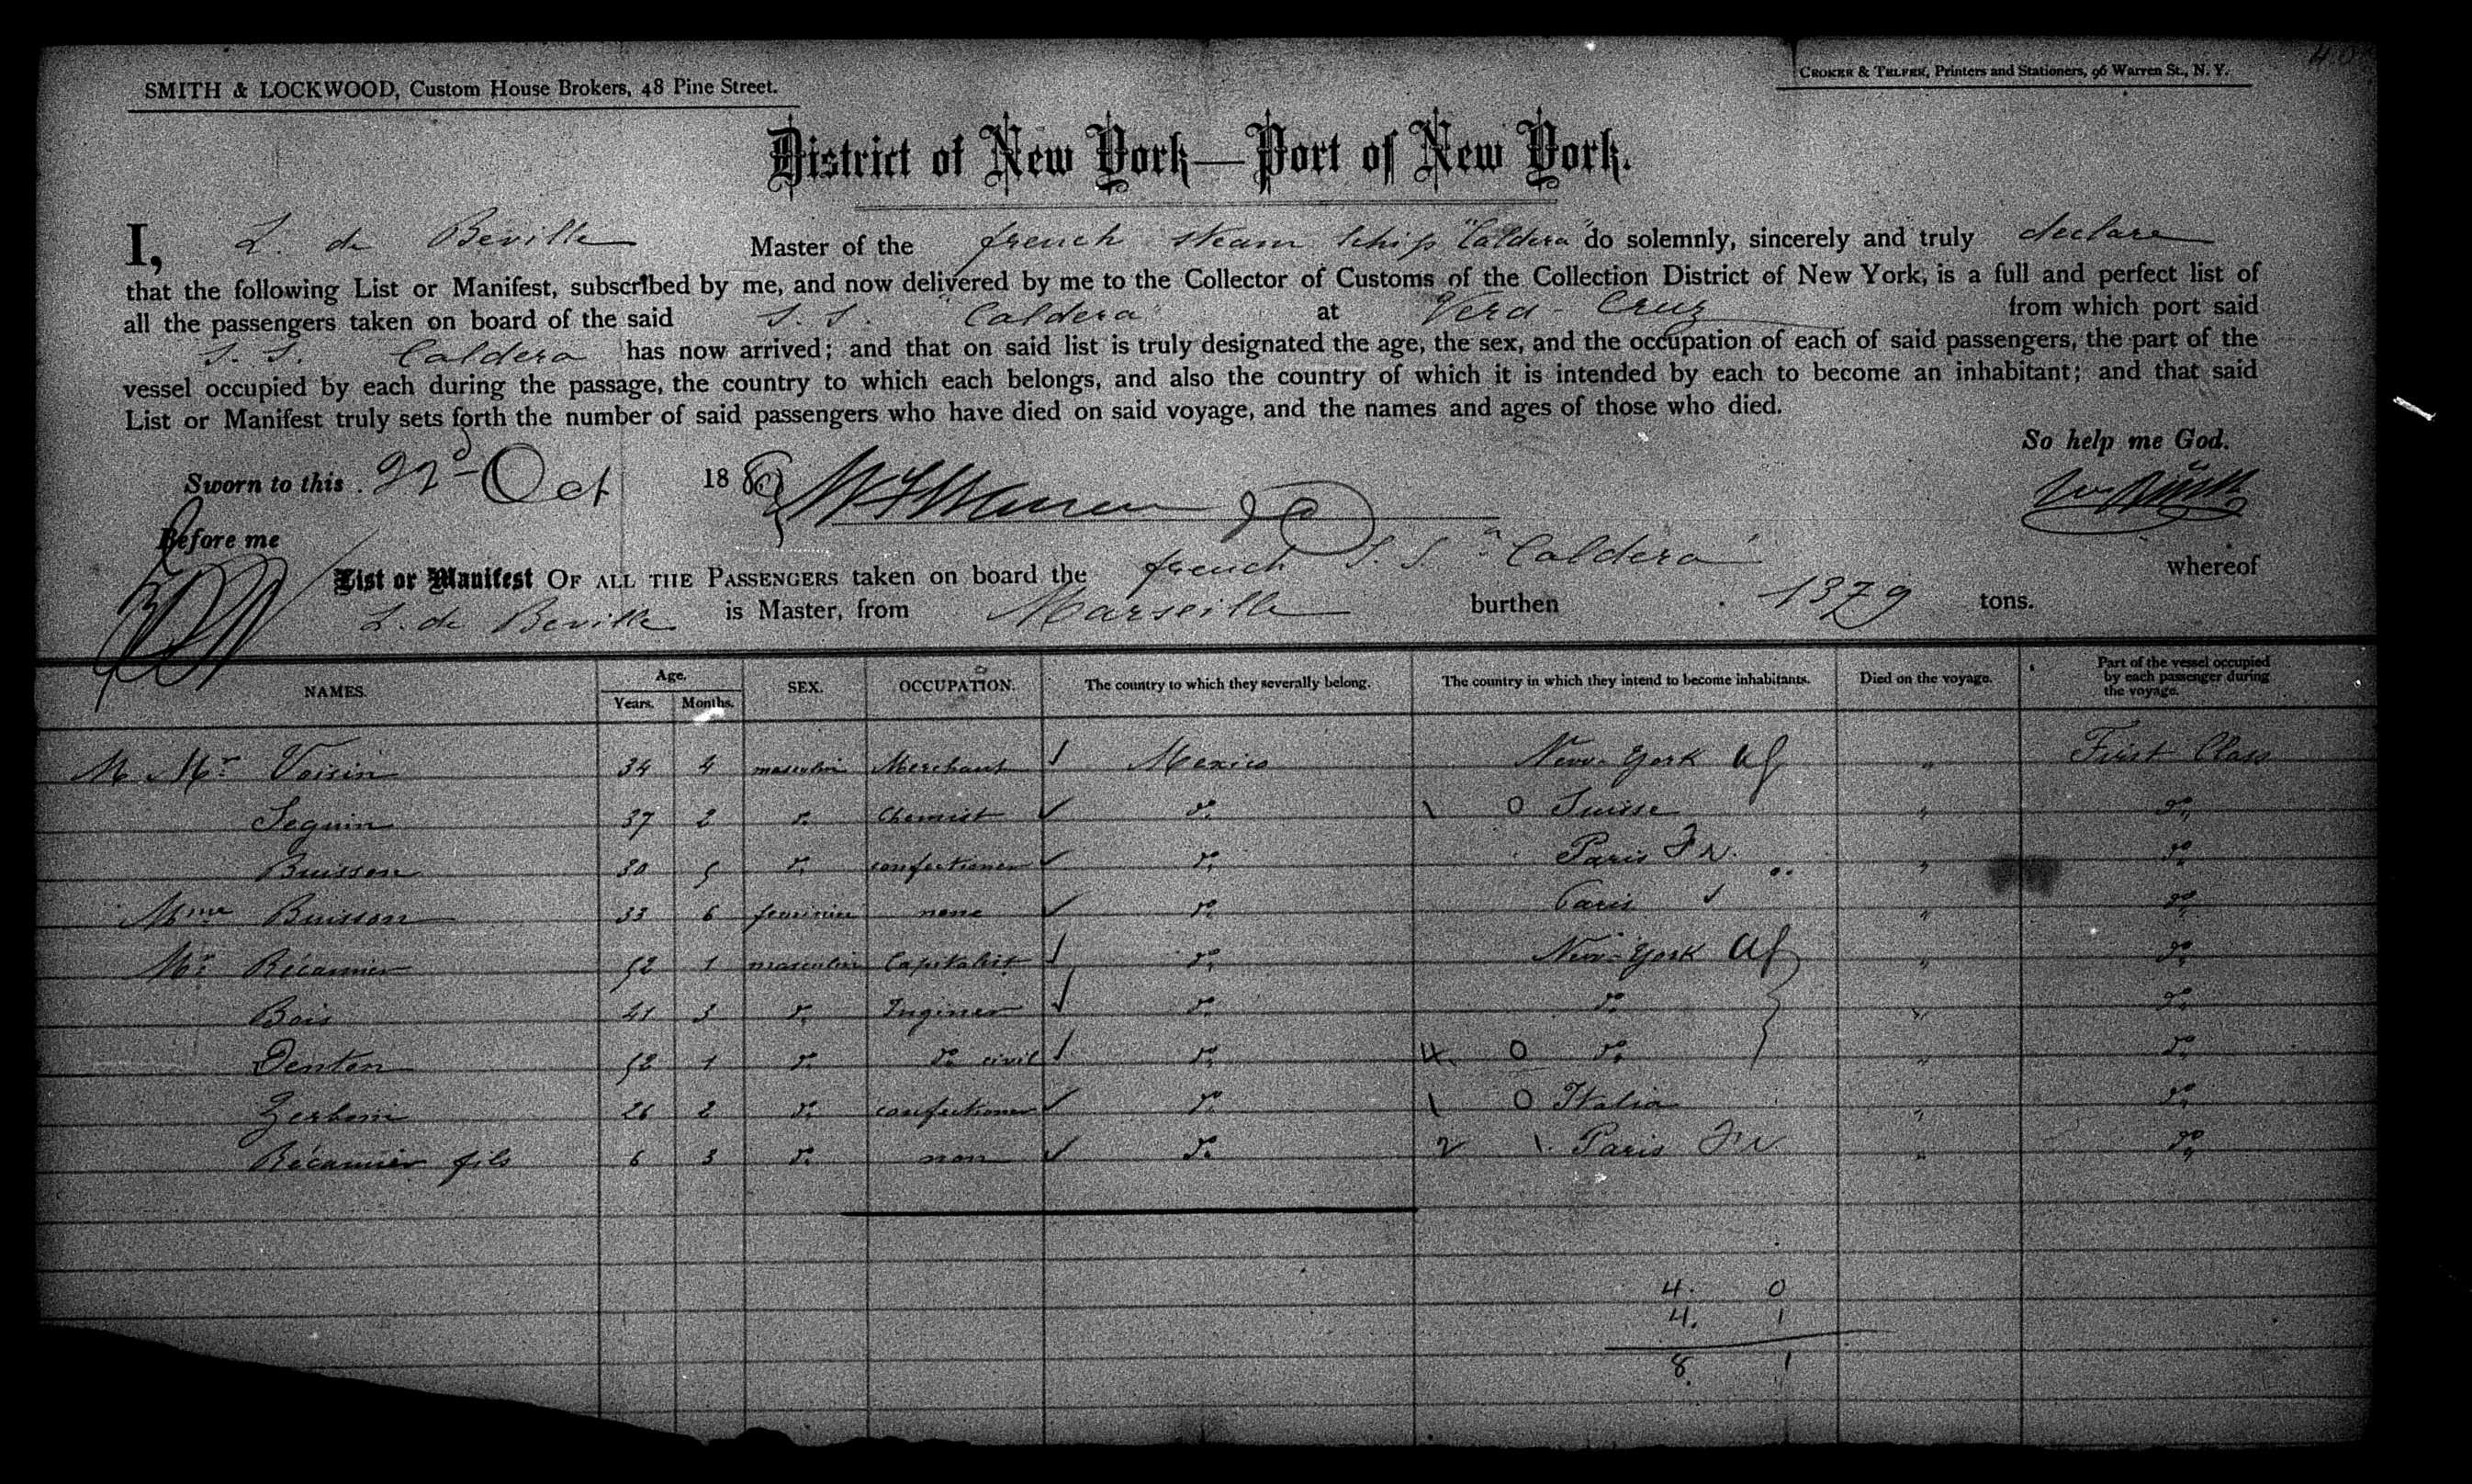 SMITH & LOCKWOOD, Custom House Brokers, 48 Pine Street.
CROKER & TELFER, Printers and Stationers, 96 Warren St., N. Y.
District of New York—Port of New York.
I, L. de Beville Master of the french steam Schip "Caldera" do solemnly, sincerely and truly declare
that the following List or Manifest, subscribed by me, and now delivered by me to the Collector of Customs of the Collection District of New York, is a full and perfect list of
all the passengers taken on board of the said S. S. "Caldera" at Vera-Cruz from which port said
S. S. Caldera has now arrived; and that on said list is truly designated the age, the sex, and the occupation of each of said passengers, the part of the
vessel occupied by each during the passage, the country to which each belongs, and also the country of which it is intended by each to become an inhabitant; and that said
List or Manifest truly sets forth the number of said passengers who have died on said voyage, and the names and ages of those who died.
So help me God.
Sworn to this 22d Oct 18
Before me
List or Manifest OF ALL THE PASSENGERS taken on board the french S. S. "Caldera" whereof
L. de Beville is Master, from Marseille burthen 1379 tons.
NAMES. Age. Years. Months. SEX. OCCUPATION. The country to which they severally belong. The country in which they intend to become inhabitants. Died on the voyage. Part of the vessel occupied by each passenger during the voyage.
M Mr Voisin 34 4 masculin Merchant Mexico New-York " First Class
Seguin 37 2 do Chemist do 1 0 Suisse " do
Buisson 30 5 do confectioner do Paris Fr. " do
Mme Buisson 33 6 feminin none do Paris " do
Mr Récamier 52 1 masculin Capitalist do New-York " do
Bois 41 3 do Inginer do do " do
Denton 52 1 do do civil do 4 0 do " do
Zerboni 26 2 do confectioner do 1 0 Italia " do
Récamier fils 6 3 do non do 2 1 Paris Fr " do
4. 0
4. 1
8. 1